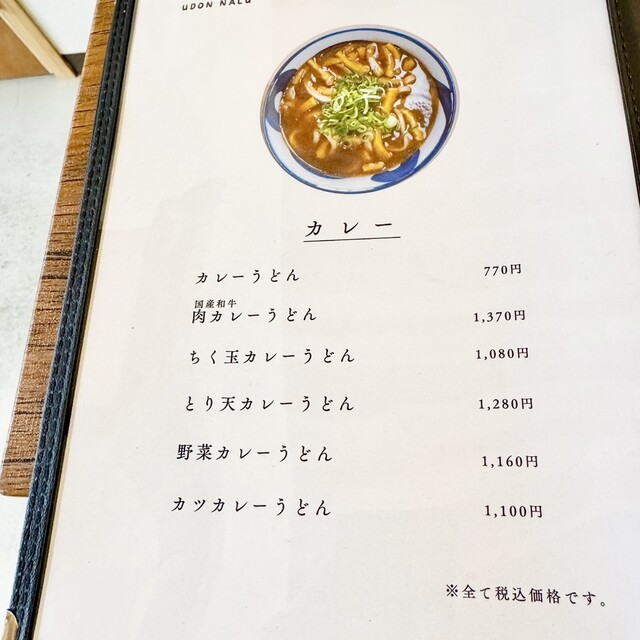 UDON NALU
カレー
カレーうどん 770円
国産和牛
肉カレーうどん 1,370円
ちく玉カレーうどん 1,080円
とり天カレーうどん 1,280円
野菜カレーうどん 1,160円
カツカレーうどん 1,100円
※全て税込価格です。